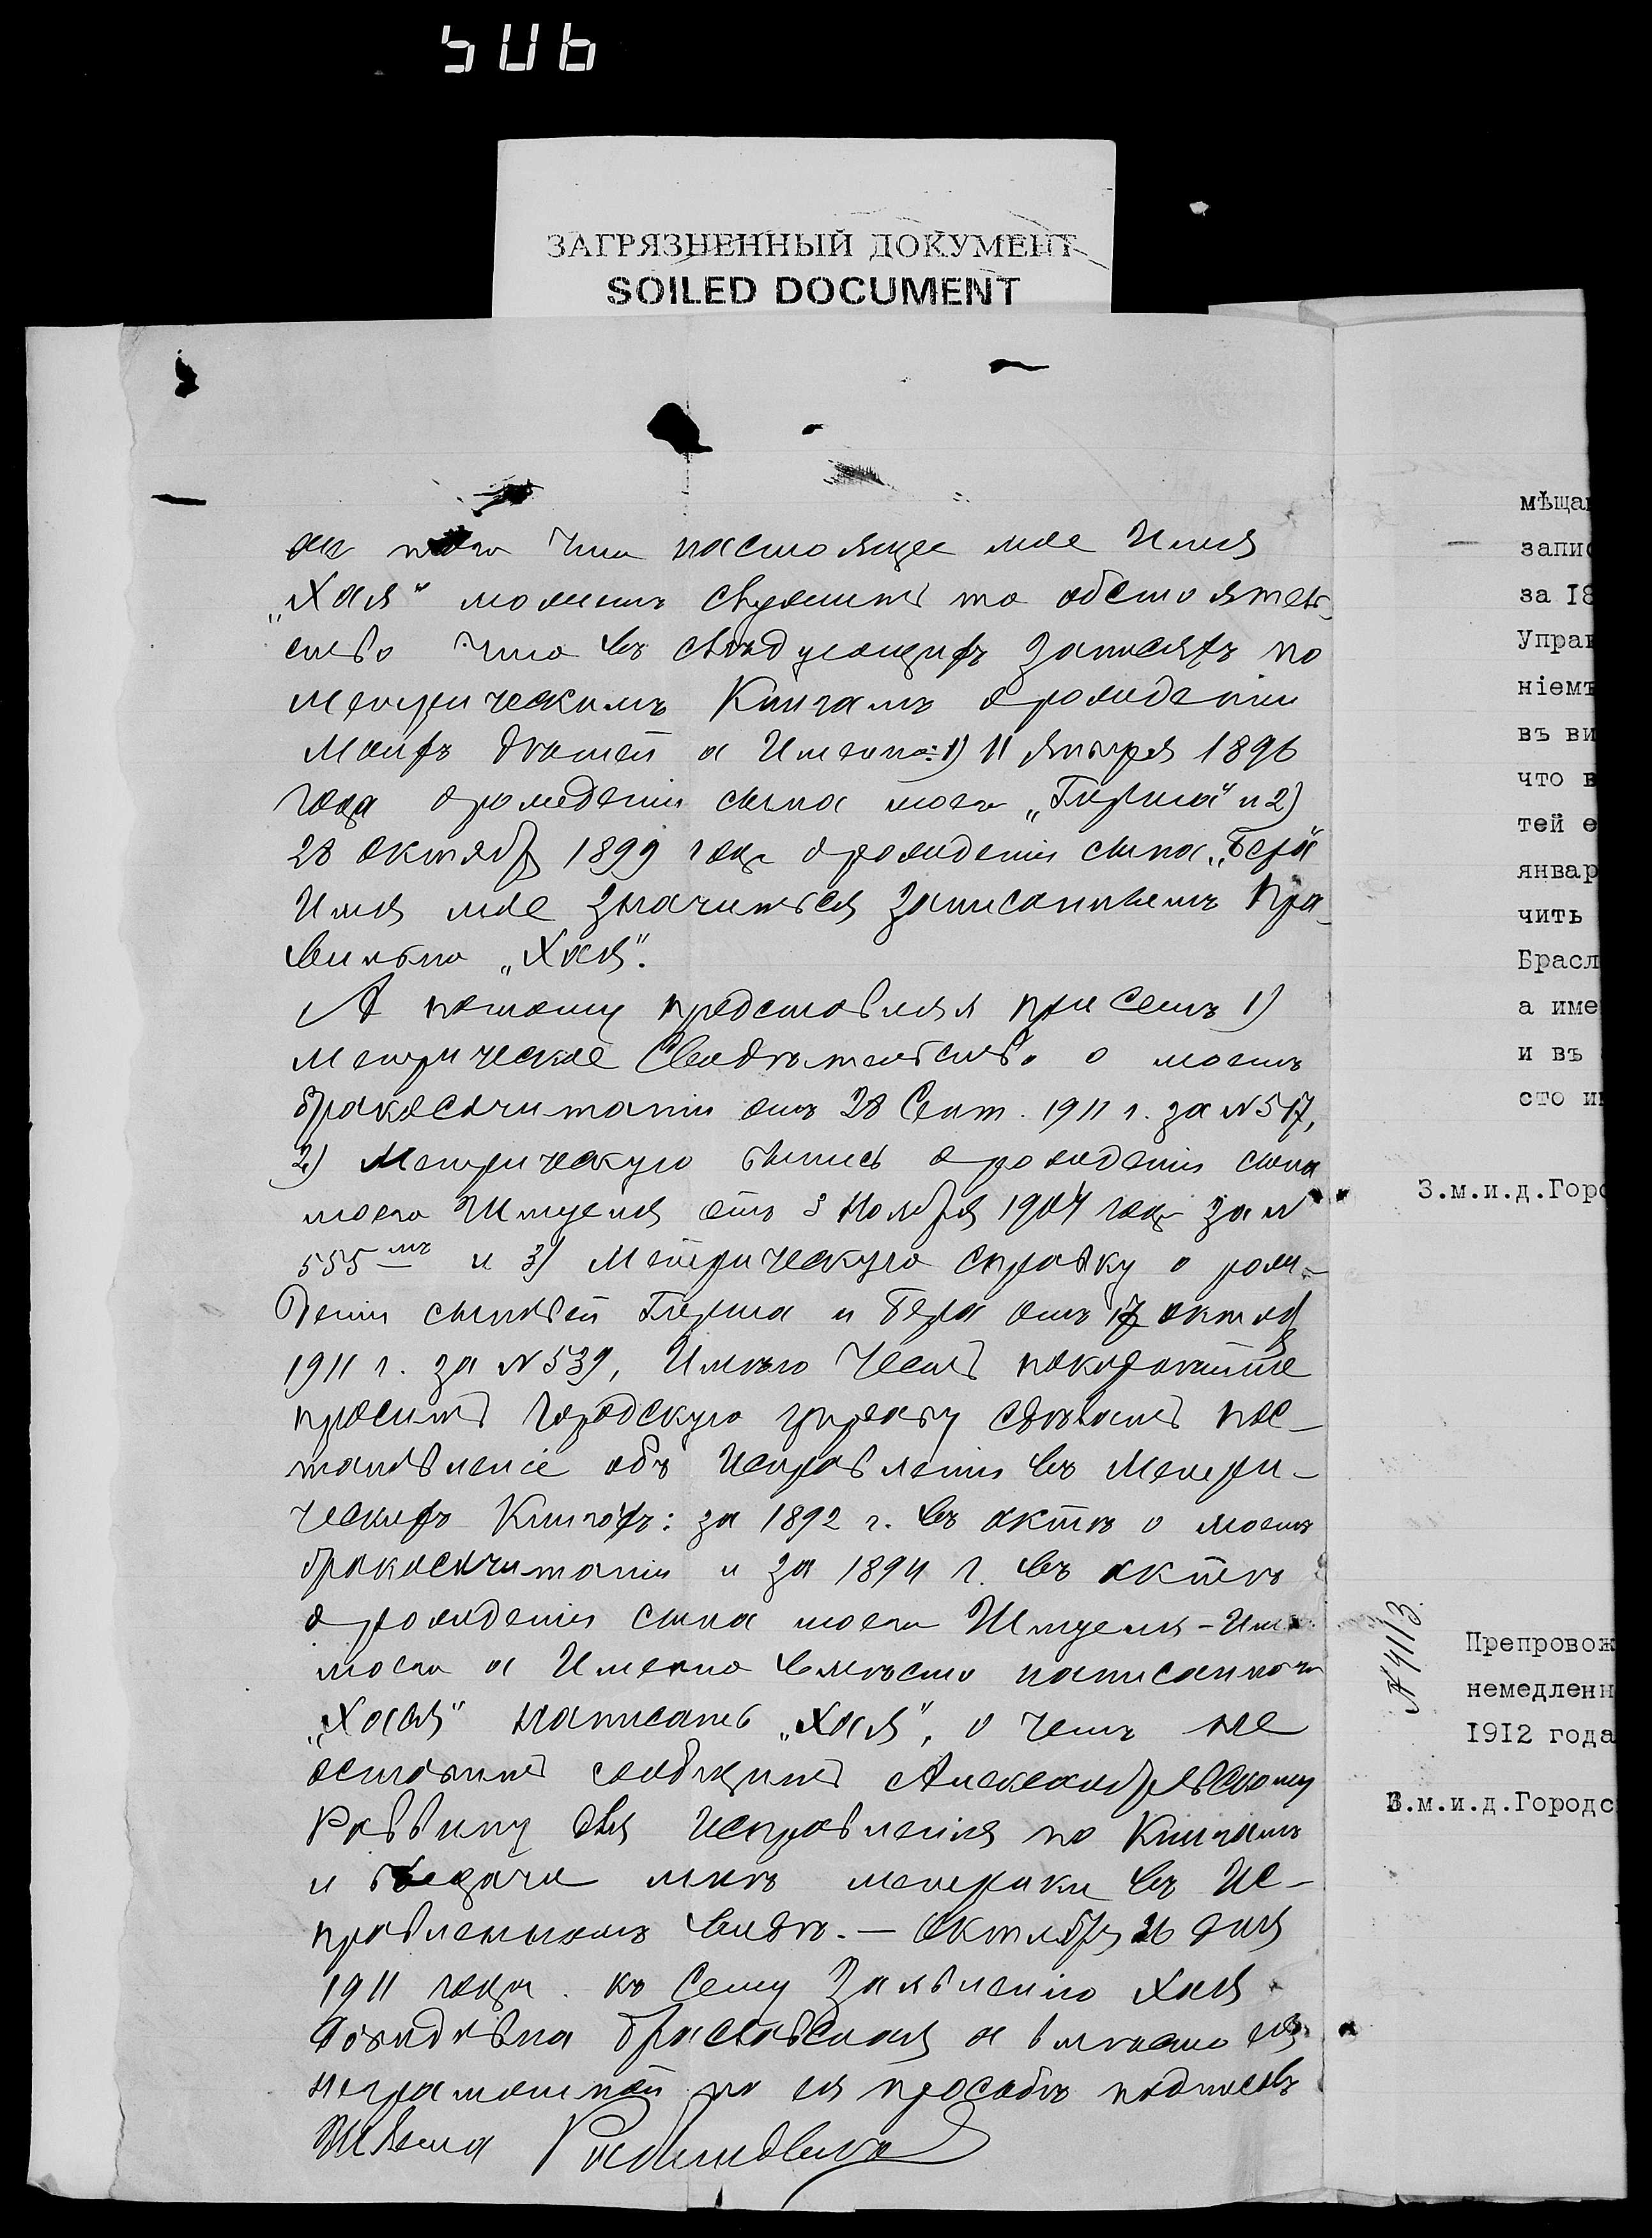 SUB
ЗАГРЯЗНЕННЫЙ ДОКУМЕНТ
SOILED DOCUMENT
что настоящее мое Имя
„Хая“ можетъ служить то обстоятель
ство что въ слѣдующихъ записяхъ по
Метрическимъ Книгамъ о рожденіи
Моихъ дѣтей а Именно: 1) 11 Января 1896
года о рожденіи сына моего „Гирша“ и 2)
28 октября 1899 года о рожденіи сына „Бера“
Имя мое значится записаннымъ Пра-
вильно „Хая“.
А потому представляя при семъ 1)
Метрическое Свидѣтельство о моемъ
бракосочитаніи отъ 28 Сент. 1911 г. за №517,
2) Метрическую выпись о рожденіи сына
моего Шмуеля отъ 3 Ноября 1904 года за №
555мъ и 3) Метрическую справку о рож-
деніи сыновей Гирша и Бера отъ 17 октяб
1911 г. за №539, Имѣю Честь покорнѣйше
просить Городскую управу сдѣлать пос-
тановленіе объ Исправленіи въ Метри-
ческихъ Книгахъ: за 1892 г. въ актѣ о моемъ
бракосочитаніи и за 1894 г. въ актѣ
о рожденіи сына моего Шмуеля-
моего а Именно вмѣсто написанного
„Хася“ написать „Хая“, о чемъ не
оставить сообщить Александровскому
Раввину для Исправленія по Книгамъ
и выдачи мнѣ метрики въ Ис-
правленномъ видѣ. — Октября 26 дня
1911 года. къ сему Заявленію Хая
Браславская а вмѣсто ея
неграмотной по ея просьбѣ подписалъ
мѣща
запис
за 18
Управ
ніемъ
въ ви
что в
тей е
январ
чить
Брасл
а име
и въ
сто и
З.м.и.д.Горо
№4113
Препровож
немедленн
1912 года
З.м.и.д.Городс